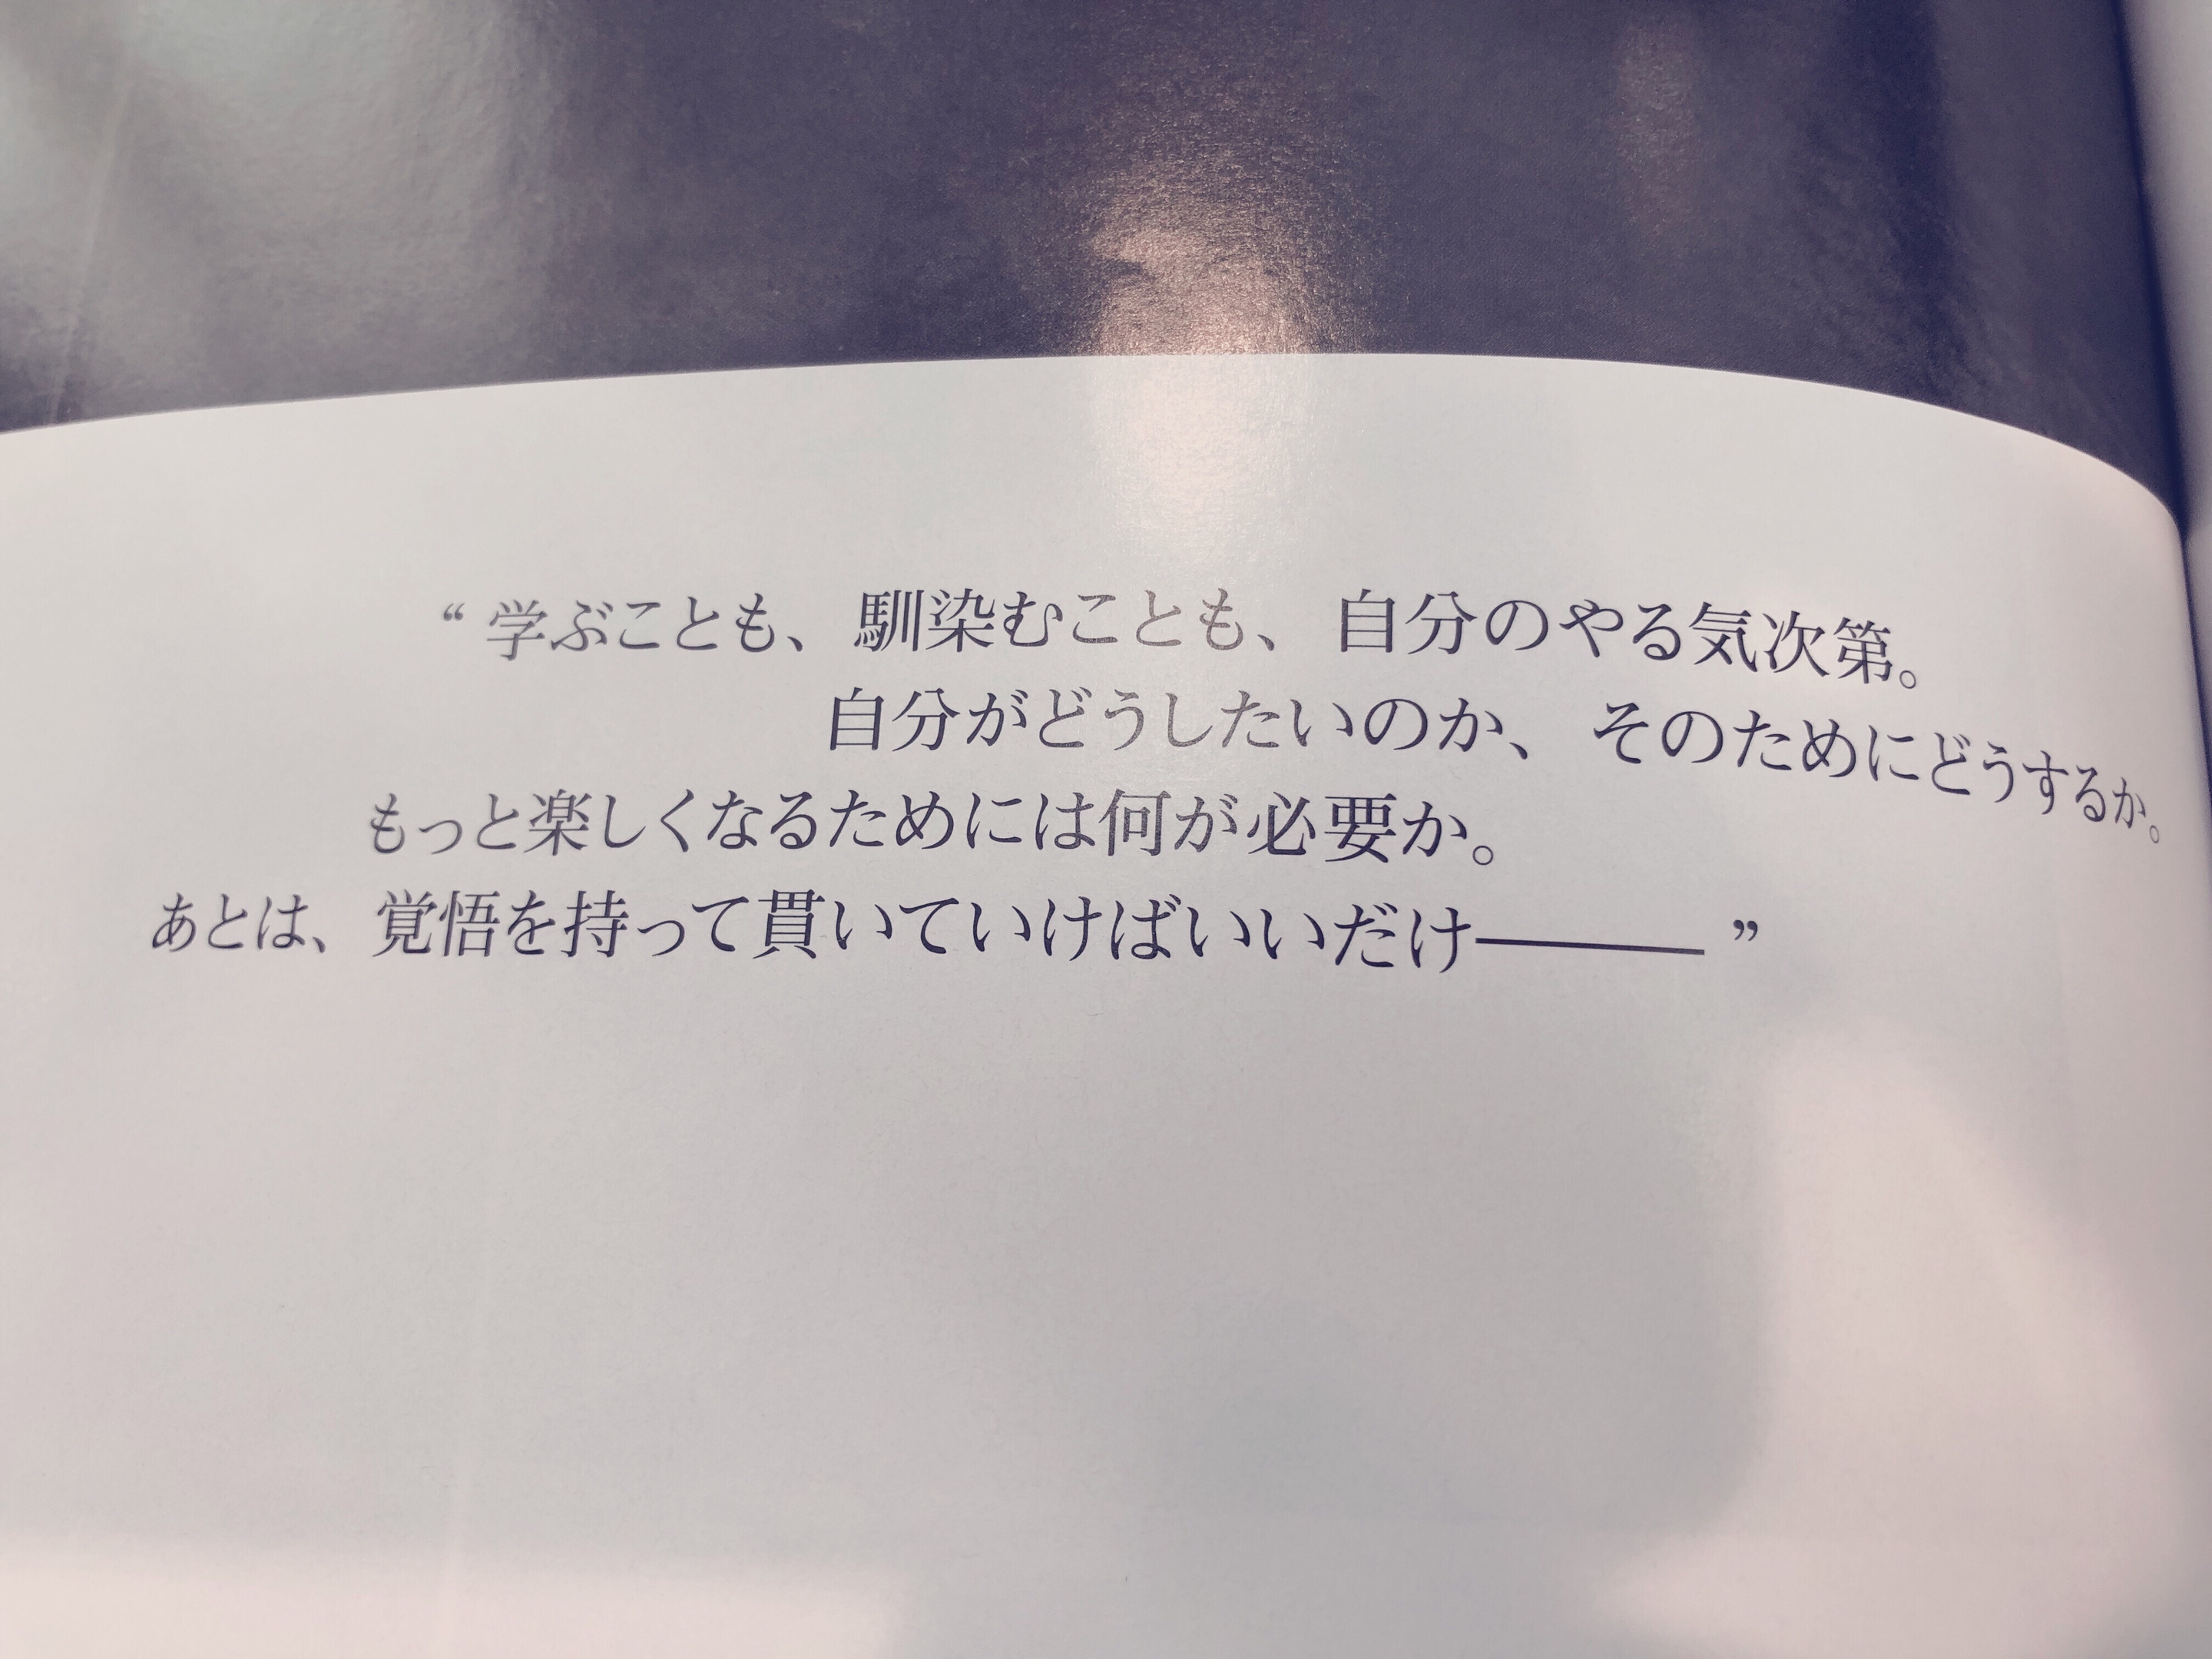 “ 学ぶことも、馴染むことも、自分のやる気次第。
自分がどうしたいのか、そのためにどうするか。
もっと楽しくなるためには何が必要か。
あとは、覚悟を持って貫いていけばいいだけ――― ”